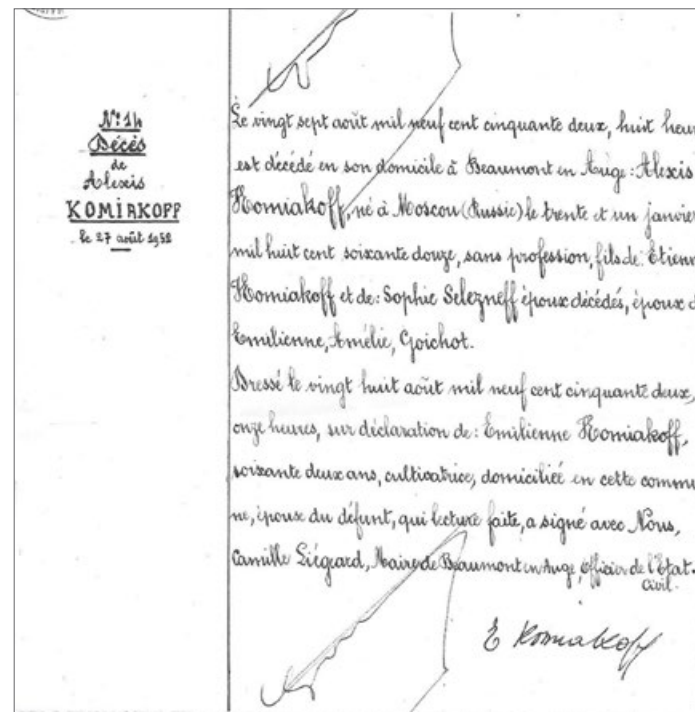 N° 14
Décès
de
Alexis
KOMIAKOFF
le 27 août 1952
Le vingt sept août mil neuf cent cinquante deux, huit heur
est décédé en son domicile à Beaumont en Auge: Alexis
Komiakoff, né à Moscou (Russie) le trente et un janvier
mil huit cent soixante douze, sans profession, fils de: Etienn
Komiakoff et de: Sophie Selezneff époux décédés, époux d
Emilienne, Amélie, Goichot.
Dressé le vingt huit août mil neuf cent cinquante deux,
onze heures, sur déclaration de: Emilienne Komiakoff,
soixante deux ans, cultivatrice, domiciliée en cette commu
ne, épouse du défunt, qui lecture faite, a signé avec Nous,
Camille Liégeard, Maire de Beaumont en Auge, Officier de l'Etat-
Civil.
E Komiakoff